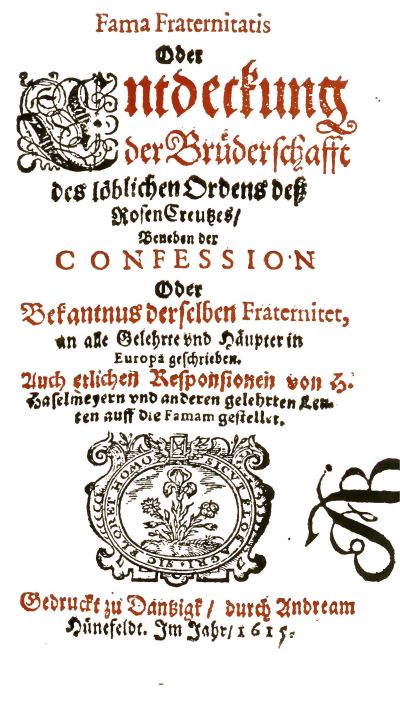 Fama Fraternitatis
Oder
Entdeckung
der Brüderschafft
des löblichen Ordens deß
RosenCreutzes/
Beneben der
CONFESSION
Oder
Bekantnus derselben Fraternitet,
an alle Gelehrte vnd Häupter in
Europa geschrieben.
Auch etlichen Responsionen von H.
Haselmeyern vnd anderen gelehrten Leu-
ten auff die Famam gestellet.
SICVT FLOS AGRI. SIC FLORET HOMO.
Gedruckt zu Dantzigk / durch Andream
Hünefeldt. Im Jahr/ 1615.